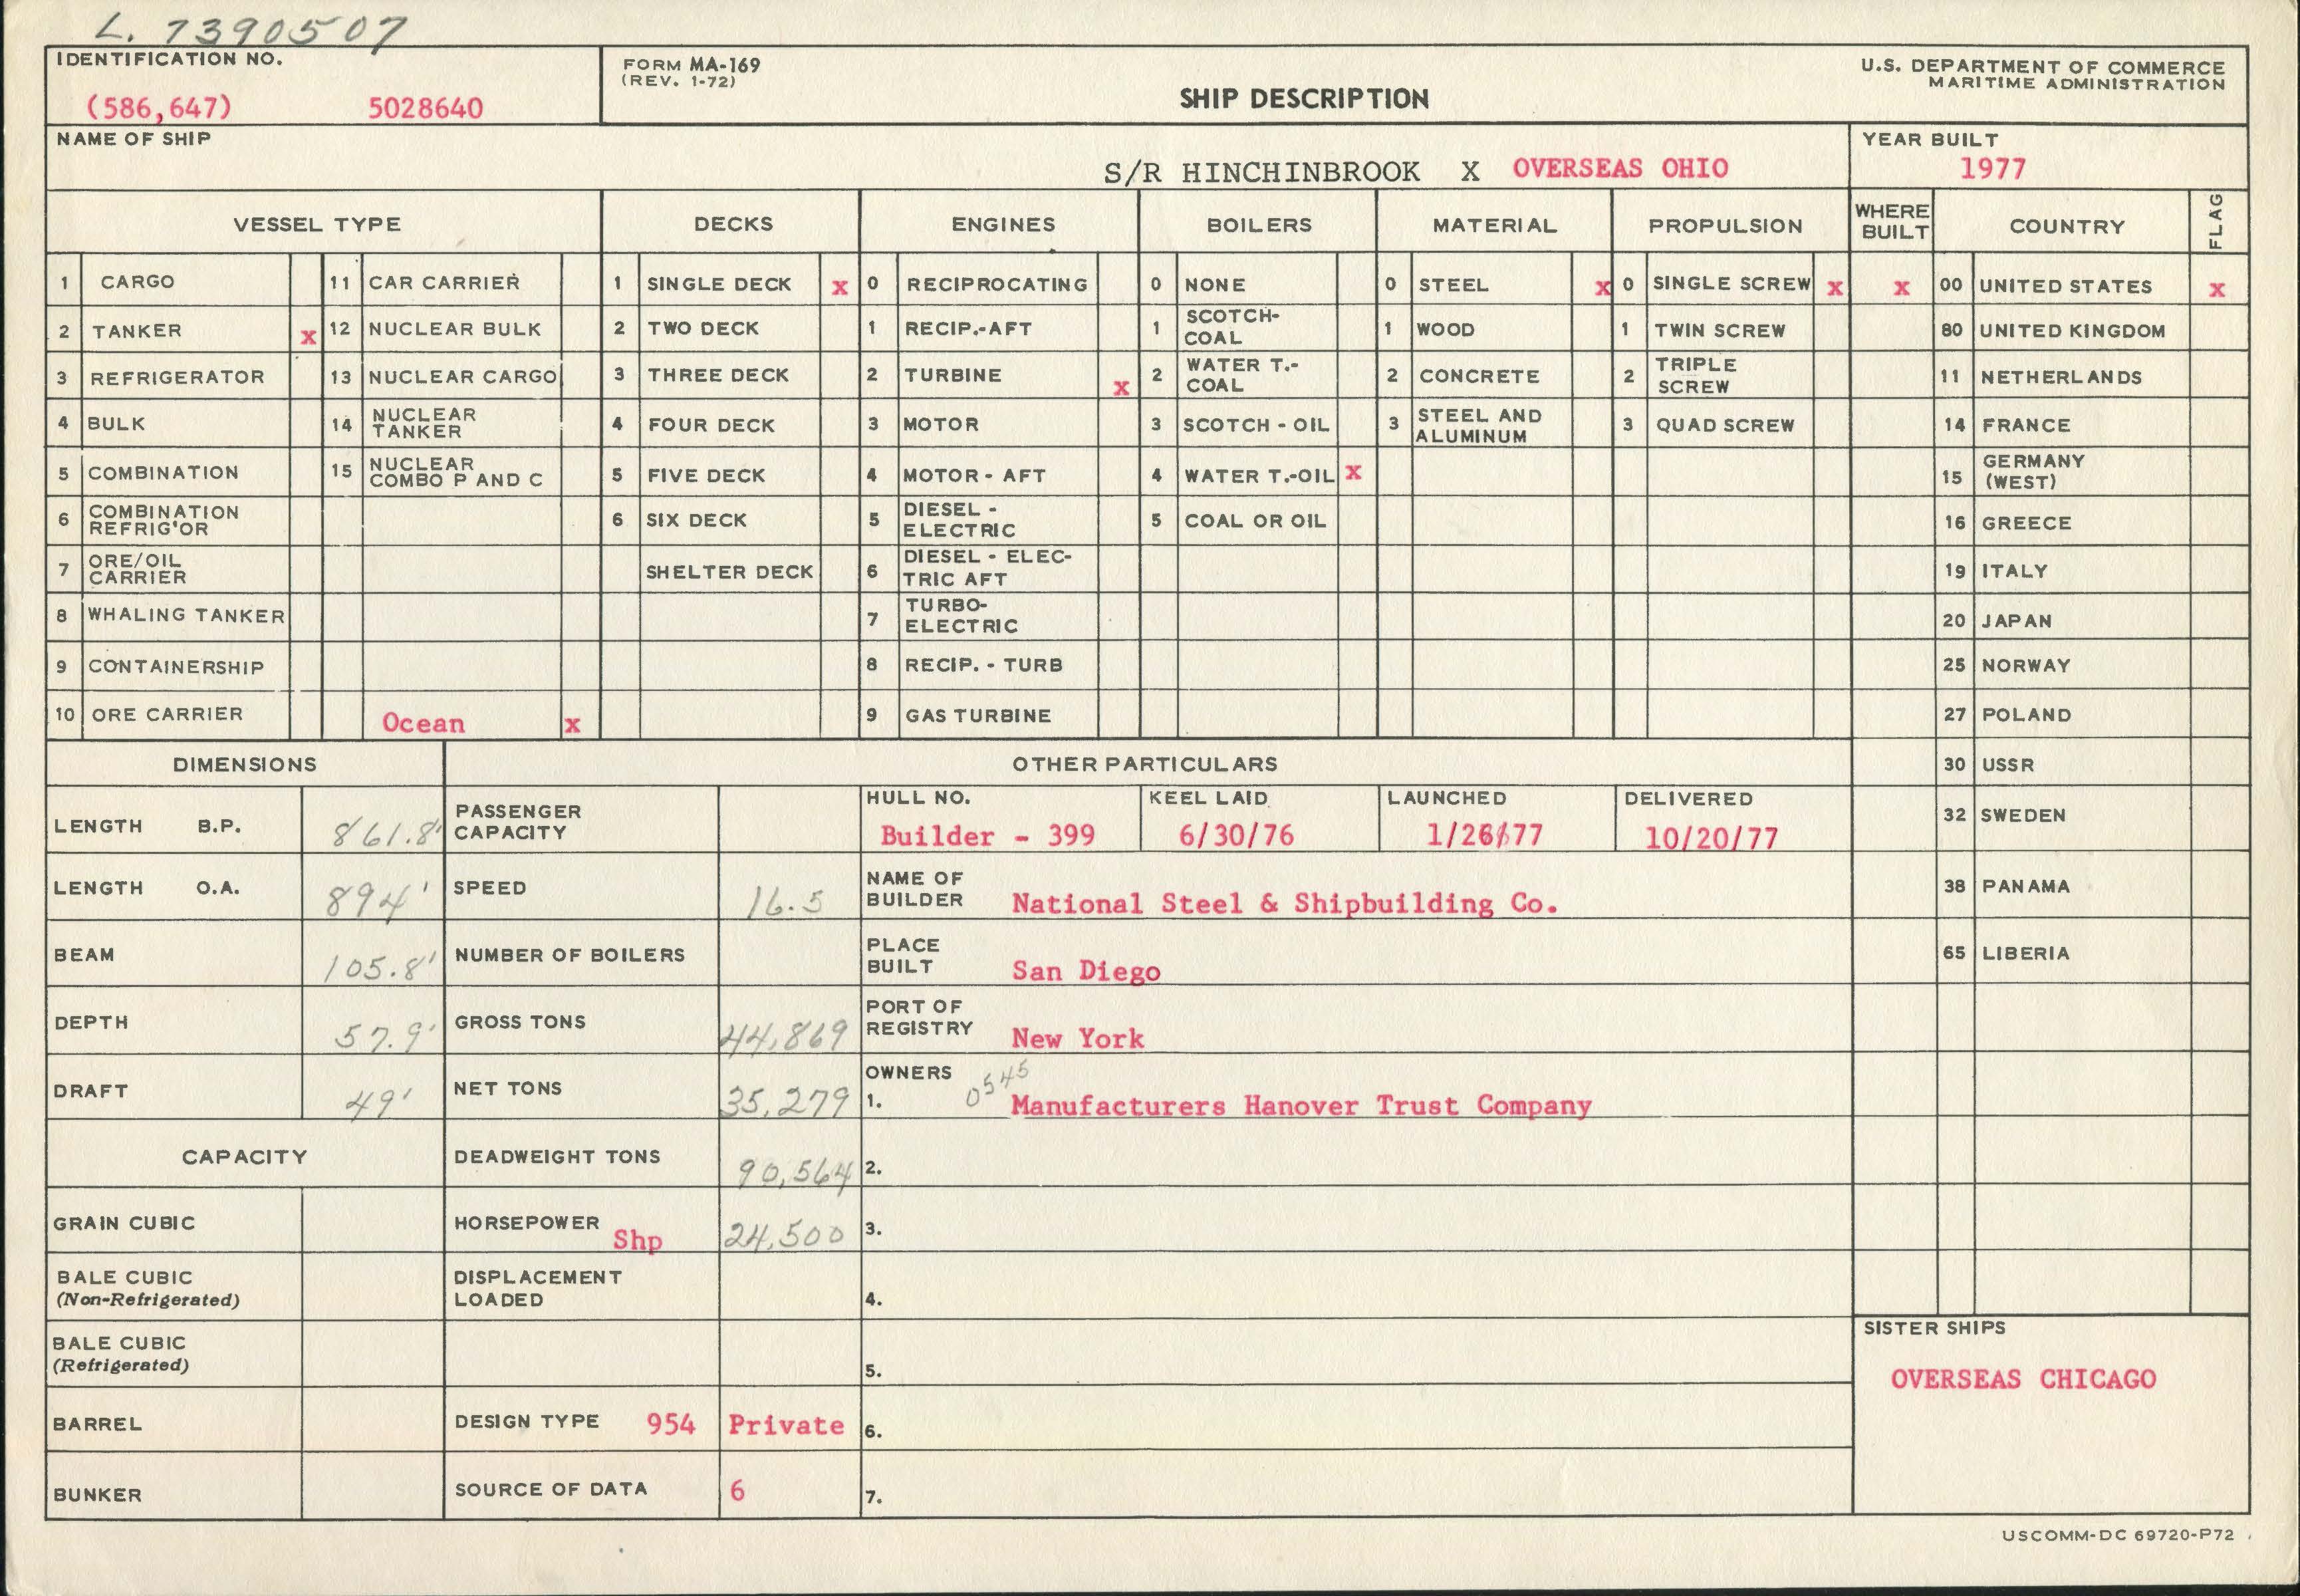 L. 7390507
IDENTIFICATION NO.
(586,647) 5028640
FORM MA-169
(REV. 1-72)
SHIP DESCRIPTION
U.S. DEPARTMENT OF COMMERCE
MARITIME ADMINISTRATION
NAME OF SHIP
S/R HINCHINBROOK X OVERSEAS OHIO
YEAR BUILT
1977
VESSEL TYPE DECKS ENGINES BOILERS MATERIAL PROPULSION WHERE BUILT COUNTRY FLAG
1 CARGO 11 CAR CARRIER 1 SINGLE DECK x 0 RECIPROCATING 0 NONE 0 STEEL x 0 SINGLE SCREW x x 00 UNITED STATES x
2 TANKER x 12 NUCLEAR BULK 2 TWO DECK 1 RECIP.-AFT 1 SCOTCH-COAL 1 WOOD 1 TWIN SCREW 80 UNITED KINGDOM
3 REFRIGERATOR 13 NUCLEAR CARGO 3 THREE DECK 2 TURBINE x 2 WATER T.-COAL 2 CONCRETE 2 TRIPLE SCREW 11 NETHERLANDS
4 BULK 14 NUCLEAR TANKER 4 FOUR DECK 3 MOTOR 3 SCOTCH - OIL 3 STEEL AND ALUMINUM 3 QUAD SCREW 14 FRANCE
5 COMBINATION 15 NUCLEAR COMBO P AND C 5 FIVE DECK 4 MOTOR - AFT 4 WATER T.-OIL x 15 GERMANY (WEST)
6 COMBINATION REFRIG'OR 6 SIX DECK 5 DIESEL - ELECTRIC 5 COAL OR OIL 16 GREECE
7 ORE/OIL CARRIER SHELTER DECK 6 DIESEL - ELEC-TRIC AFT 19 ITALY
8 WHALING TANKER 7 TURBO-ELECTRIC 20 JAPAN
9 CONTAINERSHIP 8 RECIP. - TURB 25 NORWAY
10 ORE CARRIER Ocean x 9 GAS TURBINE 27 POLAND
DIMENSIONS OTHER PARTICULARS 30 USSR
LENGTH B.P. 861.8' PASSENGER CAPACITY HULL NO. Builder - 399 KEEL LAID 6/30/76 LAUNCHED 1/26/77 DELIVERED 10/20/77 32 SWEDEN
LENGTH O.A. 894' SPEED 16.5 NAME OF BUILDER National Steel & Shipbuilding Co. 38 PANAMA
BEAM 105.8' NUMBER OF BOILERS PLACE BUILT San Diego 65 LIBERIA
DEPTH 57.9' GROSS TONS 44,869 PORT OF REGISTRY New York
DRAFT 49' NET TONS 35,279 OWNERS 1. 0545 Manufacturers Hanover Trust Company
CAPACITY DEADWEIGHT TONS 90,564 2.
GRAIN CUBIC HORSEPOWER Shp 24,500 3.
BALE CUBIC (Non-Refrigerated) DISPLACEMENT LOADED 4.
BALE CUBIC (Refrigerated) 5.
SISTER SHIPS
OVERSEAS CHICAGO
BARREL DESIGN TYPE 954 Private 6.
BUNKER SOURCE OF DATA 6 7.
USCOMM-DC 69720-P72